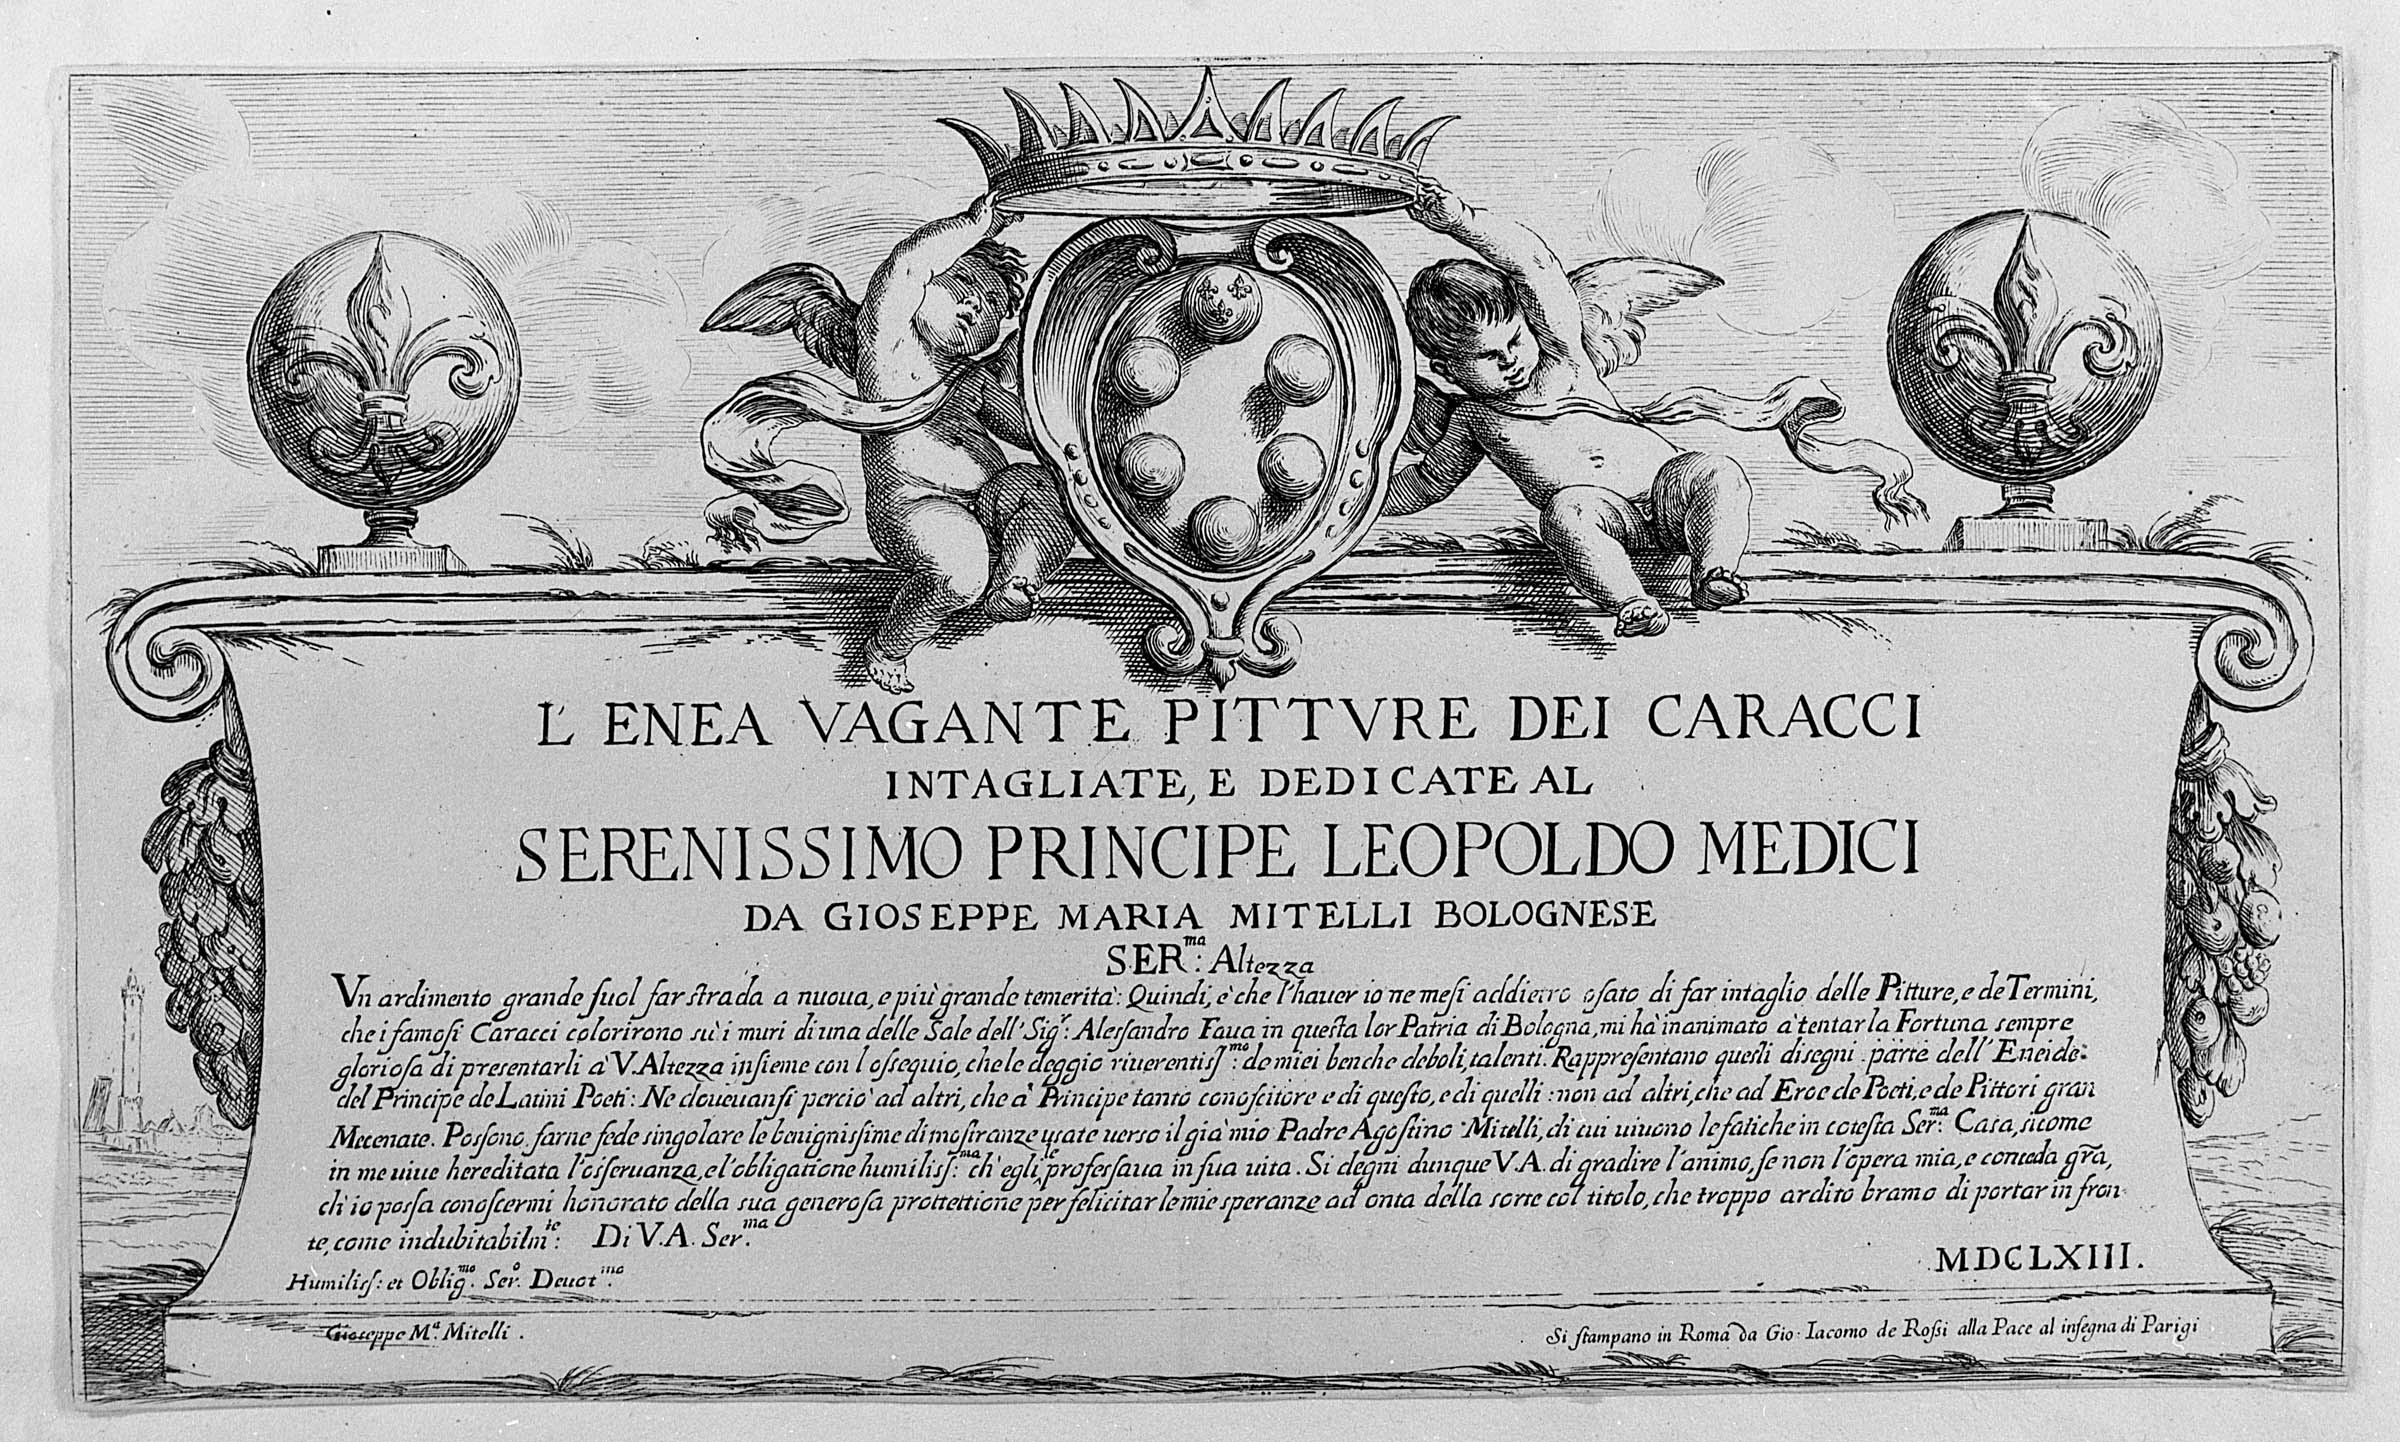 L' ENEA VAGANTE PITTVRE DEI CARACCI
INTAGLIATE, E DEDICATE AL
SERENISSIMO PRINCIPE LEOPOLDO MEDICI
DA GIOSEPPE MARIA MITELLI BOLOGNESE
SER.ma: Altezza
Vn ardimento grande suol far strada a nuoua, e più grande temerità: Quindi, è che l'hauer io ne mesi addietro osato di far intaglio delle Pitture, e de Termini,
che i famosi Caracci colorirono sù i muri di una delle Sale dell' Sigr: Alessandro Faua in questa lor Patria di Bologna, mi hà inanimato à tentar la Fortuna sempre
gloriosa di presentarli à V. Altezza insieme con l ossequio, che le deggio riuerentissmo: de miei benche deboli, talenti. Rappresentano questi disegni parte dell' Eneide:
del Principe de Latini Poeti: Ne doueuansi perciò ad altri, che à Principe tanto conoscitore e di questo, e di quelli: non ad altri, che ad Eroe de Poeti, e de Pittori gran
Mecenate. Possono farne fede singolare le benignissime dimostranze usate uerso il già mio Padre Agostino Mitelli, di cui uiuono le fatiche in cotesta Ser.ma Casa, sicome
in me uiue hereditata l'osseruanza, e l'obligatione humiliss:ma ch' egli le professaua in sua uita. Si degni dunque V.A. di gradire l'animo, se non l'opera mia, e conceda grã,
ch' io possa conoscermi honorato della sua generosa prottettione per felicitar le mie speranze ad onta della sorte col titolo, che troppo ardito bramo di portar in fron-
te, come indubitabilmte: Di V.A. Ser.ma
MDCLXIII.
Humiliss: et Obligmo. Sero. Deuotmo
Gioseppe Ma. Mitelli.
Si stampano in Roma da Gio: Iacomo de Rossi alla Pace al insegna di Parigi